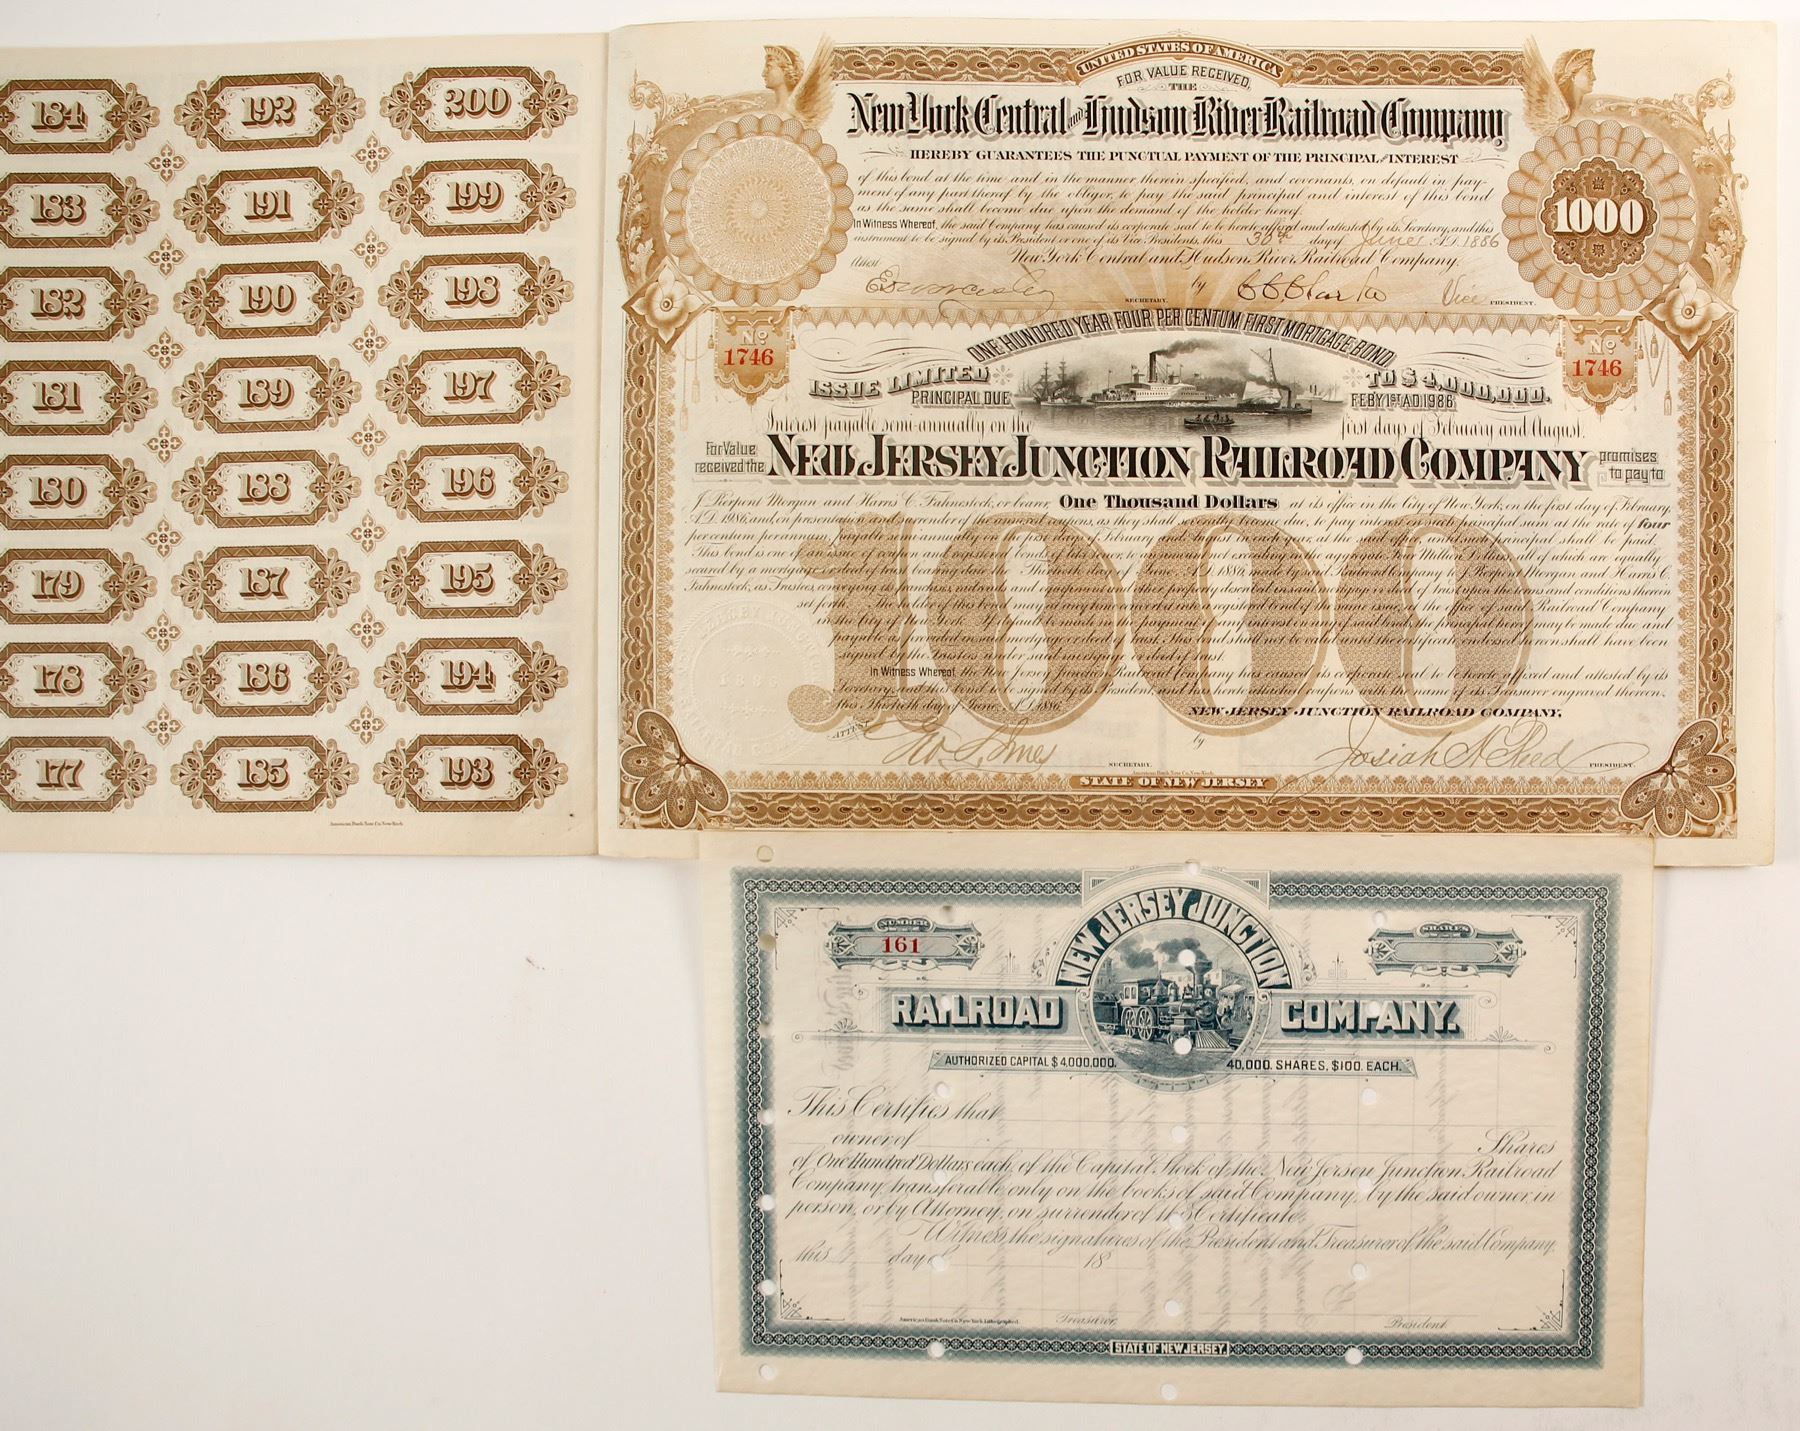 184 192 200
183 191 199
182 190 198
181 189 197
180 188 196
179 187 195
178 186 194
177 185 193
American Bank Note Co. New York.
UNITED STATES OF AMERICA
FOR VALUE RECEIVED,
THE
New York Central and Hudson River Railroad Company
HEREBY GUARANTEES THE PUNCTUAL PAYMENT OF THE PRINCIPAL AND INTEREST
of this bond at the time and in the manner therein specified, and covenants, on default in pay-
ment of any part thereof by the obligor, to pay the said principal and interest of this bond
as the same shall become due upon the demand of the holder hereof.
In Witness Whereof, the said Company has caused its corporate seal to be hereto affixed and attested by its Secretary, and this
instrument to be signed by its President or one of its Vice Presidents, this 30th day of June A.D. 1886
New York Central and Hudson River Railroad Company.
1000
Attest
SECRETARY. by Vice PRESIDENT.
No 1746
No 1746
ONE HUNDRED YEAR FOUR PER CENTUM FIRST MORTGAGE BOND
ISSUE LIMITED TO $4,000,000.
PRINCIPAL DUE FEBY 1ST A.D. 1986
Interest payable semi-annually on the first days of February and August.
For Value received the NEW JERSEY JUNCTION RAILROAD COMPANY promises to pay to
J. Pierpont Morgan and Harris C. Fahnestock, or bearer, One Thousand Dollars at its office in the City of New York, on the first day of February,
A.D. 1986, and on presentation and surrender of the annexed coupons, as they shall severally become due, to pay interest on such principal sum at the rate of four
per centum per annum, payable semi-annually on the first days of February and August in each year, at the said office, until such principal shall be paid.
This bond is one of an issue of coupon and registered bonds of like tenor, to an amount not exceeding in the aggregate Four Million Dollars, all of which are equally
secured by a mortgage or deed of trust bearing date the Thirtieth day of June, A.D. 1886, made by said Railroad Company to J. Pierpont Morgan and Harris C.
Fahnestock, as Trustees, conveying its franchises, railroad and equipment and other property described in said mortgage or deed of trust upon the terms and conditions therein
set forth. The holder of this bond may at any time convert it into a registered bond of the same issue, at the office of said Railroad Company
in the City of New York. If default be made in the payment of any interest on any of said bonds, the principal hereof may be made due and
payable as provided in said mortgage or deed of trust. This bond shall not be valid until the certificate endorsed hereon shall have been
signed by the trustees under said mortgage or deed of trust.
In Witness Whereof, the New Jersey Junction Railroad Company has caused its corporate seal to be hereto affixed and attested by its
Secretary, and this bond to be signed by its President and the hereto attached coupons with the name of its Treasurer engraved thereon,
this Thirtieth day of June, A.D. 1886.
1000
NEW JERSEY JUNCTION RAILROAD COMPANY,
ATTEST
SECRETARY. by PRESIDENT.
American Bank Note Co. New York.
STATE OF NEW JERSEY
NUMBER
161
SHARES
NEW JERSEY JUNCTION
RAILROAD COMPANY.
AUTHORIZED CAPITAL $4,000,000. 40,000. SHARES, $100. EACH.
This Certifies that
owner of Shares
of One Hundred Dollars each, of the Capital Stock of the New Jersey Junction Railroad
Company, transferable only on the books of said Company, by the said owner, in
person, or by Attorney, on surrender of this Certificate.
Witness the signatures of the President and Treasurer of the said Company.
this day of 18
American Bank Note Co. New York. Lithographed.
Treasurer. President.
STATE OF NEW JERSEY.